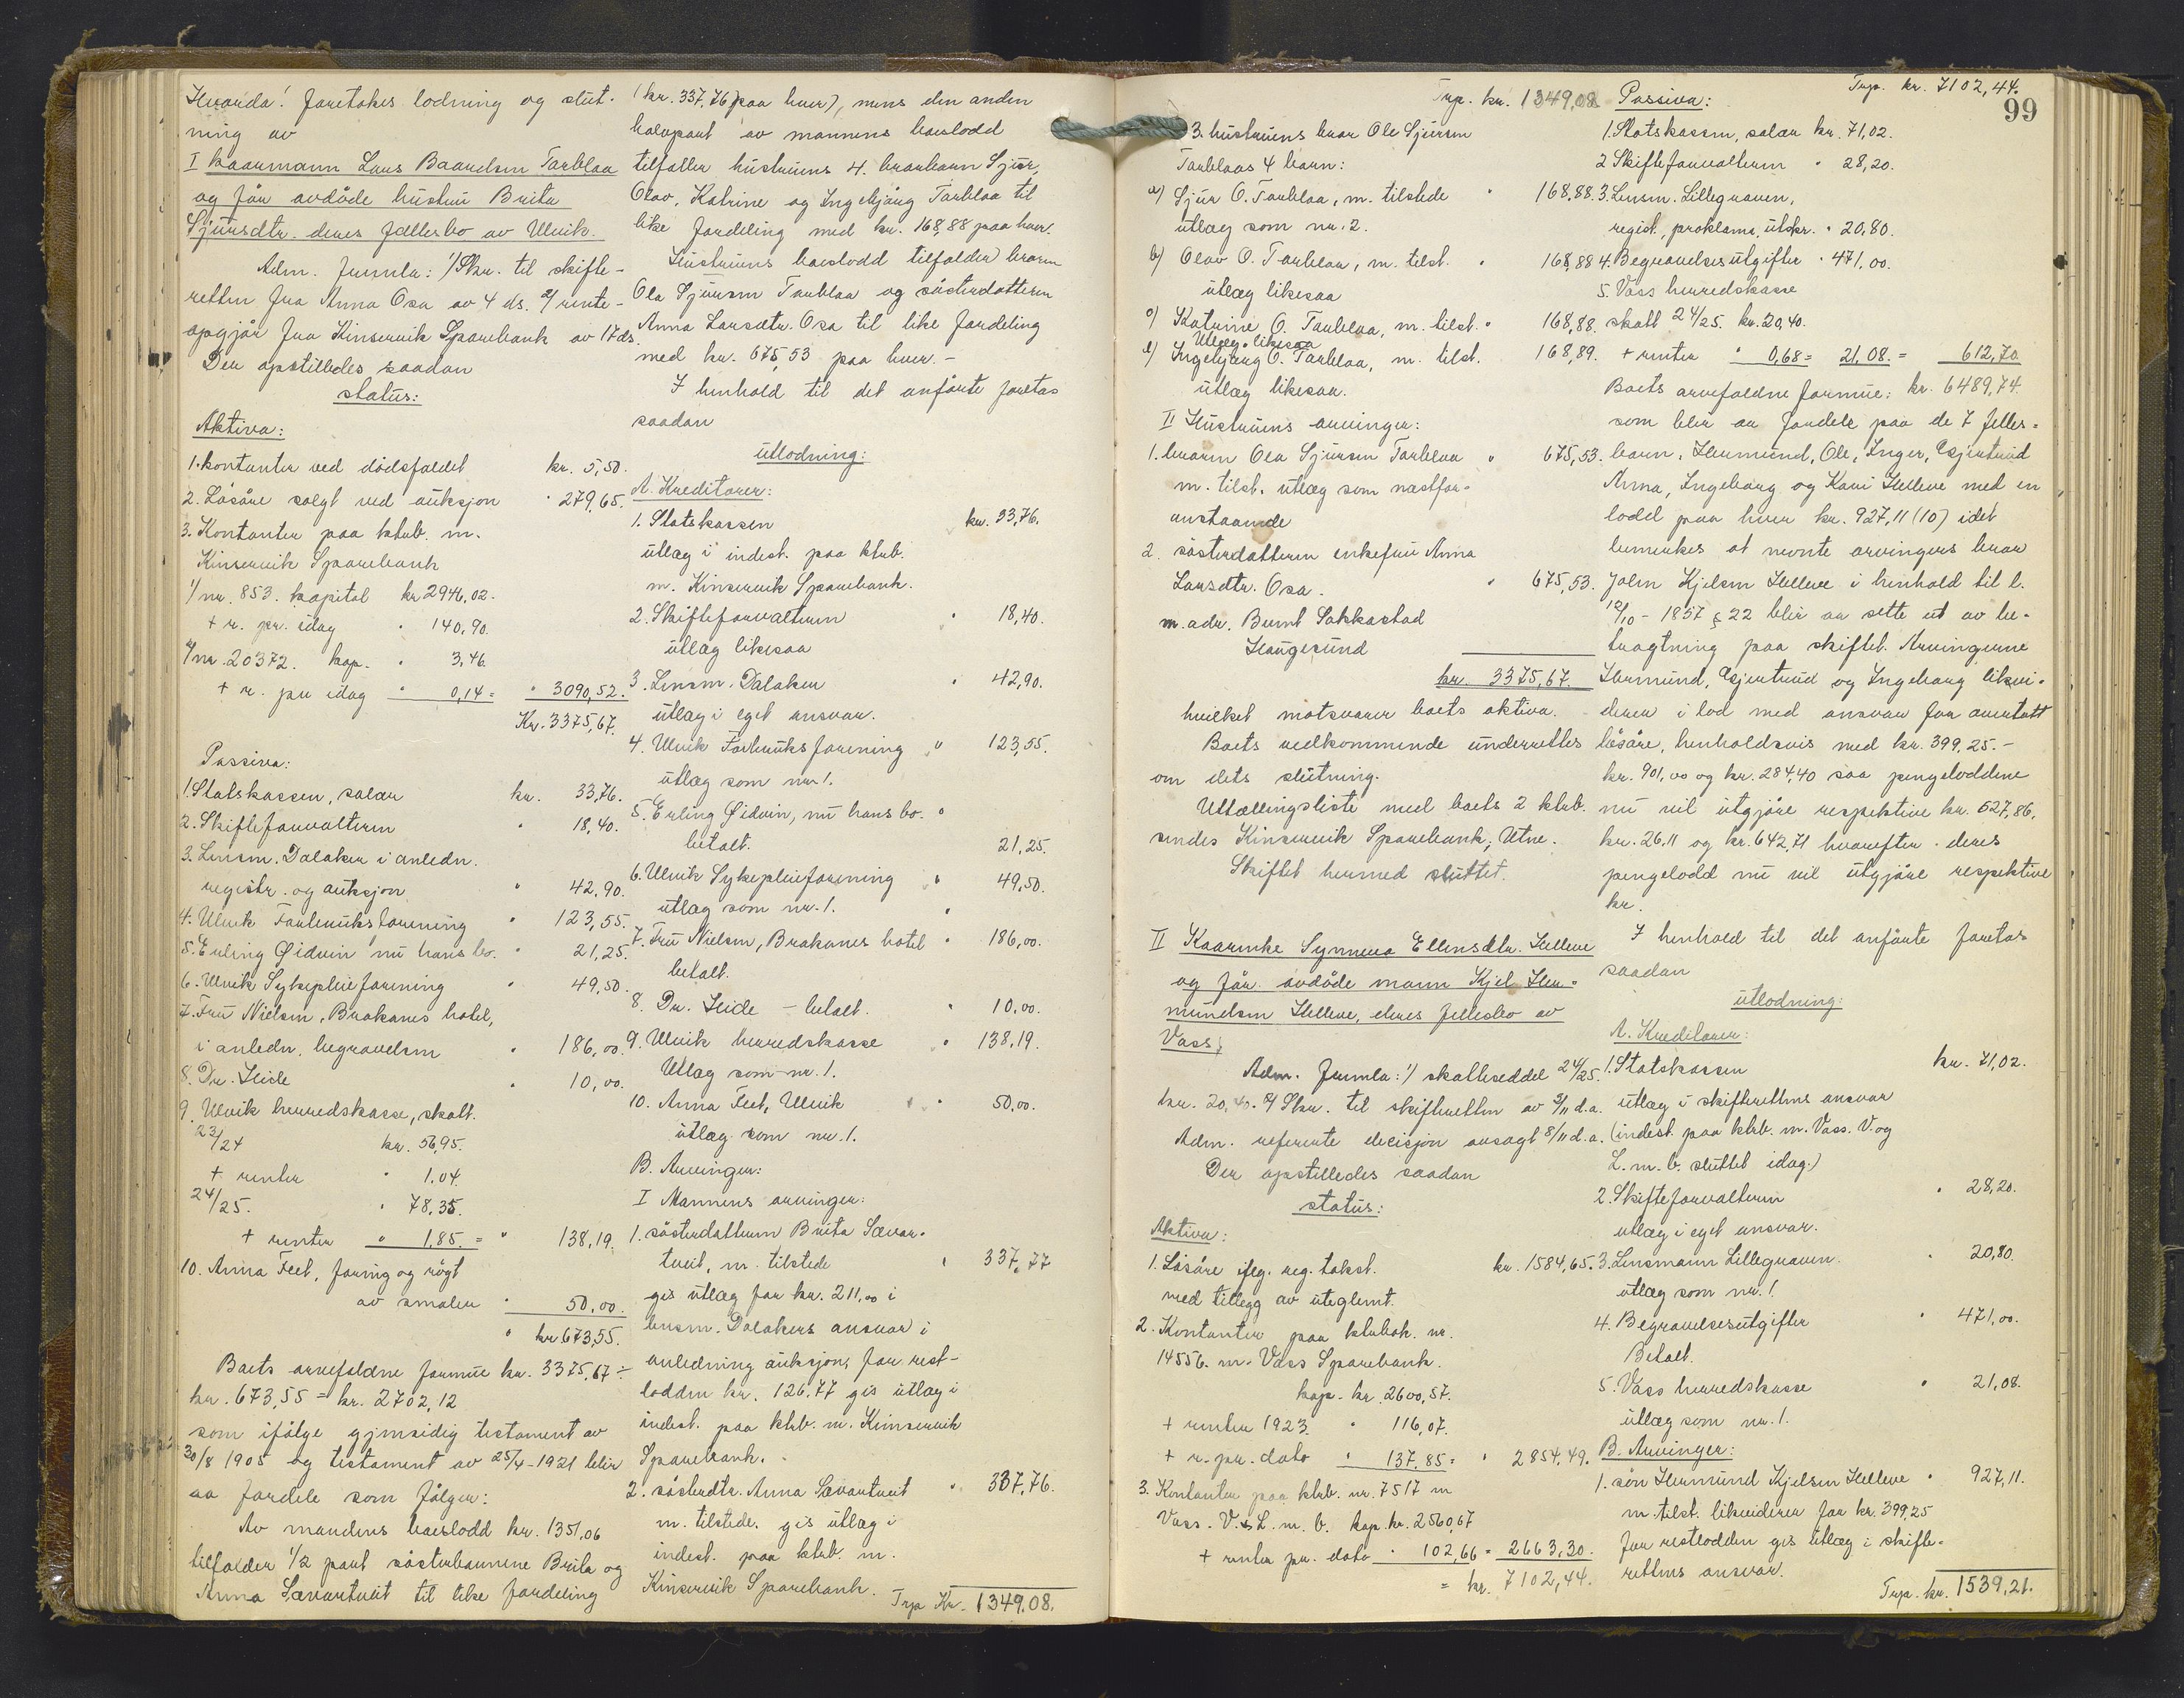 Hvorda! foretokes lodning og slut-
ning av
I kaarmann Lars Baardsen Tarblaa
og før avdøde hustru Brita
Sjursdtr. deres fællesbo av Ulvik.
Adm. fremla: 1/ Skr. til skifte-
retten fra Anna Osa av 4 ds. 2/ rente-
opgjør fra Kinservik Sparebank av 17 ds.
Der opstilledes saadan
status:
Aktiva:
1. kontanter ved dødsfaldet kr. 5,50.
2. Løsøre solgt ved auksjon " 279,65.
3. Kontanter paa ktrb. m.
Kinservik Sparebank
1/ nr. 853. kapital kr 2946,02.
+ r. pr. idag " 140,90.
2/ nr. 20372. kap. " 3,46.
+ r. pr idag " 0,14 = " 3090,52.
Kr. 3375,67.
Passiva:
1. Statskassen, salær kr. 33,76.
2. Skifteforvalteren " 18,40.
3. Lensm. Dalaker i anledn.
registr. og auksjon " 42,90.
4. Ulvik Forbruksforening " 123,55.
5. Erling Øidvin nu hans bo. " 21,25.
6. Ulvik Sykepleieforening " 49,50.
7. Fru Nielsen, Brakanes hotel,
i anledn. begravelsen " 186,00.
8. Dr. Heide " 10,00.
9. Ulvik herredskasse, skatt.
23/24 kr. 56,95.
+ renter " 1,04.
24/25. " 78,35.
+ renter " 1,85. = " 138,19.
10. Anna Feet, foring og røgt
av smaler " 50,00.
" kr 673,55.
Boets arvefaldne formue kr. 3375,67 ÷
kr. 673,55 = kr. 2702,12
som ifølge gjensidig testament av
30/8 1905 og testament av 25/4-1921 blir
aa fordele som følger:
Av mandens boeslodd kr. 1351,06
tilfalder 1/2 part søsterbarnene Brita og
Anna Sævartveit til like fordeling
(kr. 337,76 paa hver), mens den anden
halvpart av mannens boeslodd
tilfaller hustruens 4. brorbarn Sjur,
Olav, Katrine og Ingebjørg Tarblaa til
like fordeling med kr. 168,88 paa hver.
Hustruens boeslodd tilfalder broren
Ola Sjursen Tarblaa og søsterdatteren
Anna Larsdtr. Osa til like fordeling
med kr. 675,53 paa hver. -
I henhold til det anførte foretas
saadan
utlodning:
A. Kreditorer:
1. Statskassen kr. 33,76.
utlæg i indest. paa ktrb.
m. Kinservik Sparebank.
2. Skifteforvalteren " 18,40.
utlæg likesaa
3. Lensm. Dalaker " 42,90.
utlæg i eget ansvar.
4. Ulvik Forbruksforening " 123,55.
utlæg som nr 1.
5. Erling Øidvin, nu hans bo. "
betalt. 21,25.
6. Ulvik Sykepleieforening " 49,50.
utlæg som nr. 1.
7. Fru Nielsen, Brakanes hotel " 186,00.
betalt.
8. Dr. Heide - betalt. " 10,00.
9. Ulvik herredskasse " 138,19.
Utlæg som nr. 1.
10. Anna Feet, Ulvik " 50,00.
utlæg som nr. 1.
B. Arvinger:
I Mannens arvinger:
1. søsterdatteren Brita Sævar-
tveit, m. tilstede " 337,77
gis utlæg for kr. 211,00 i
lensm. Dalakers ansvar i
anledning auksjon, for rest-
lodden kr. 126,77 gis utlæg i
indest. paa ktrb. m. Kinservik
Sparebank.
2. søsterdtr. Anna Sævartveit " 337,76.
m. tilstede. gis utlæg i
indest. paa ktrb. m.
Kinservik Sparebank.
Trp Kr. 1349,08.
99
Trp. kr. 1349,08
3. hustruens bror Ole Sjursen
Tarblaas 4 barn:
a) Sjur O. Tarblaa, m. tilstede " 168,88.
utlæg som nr. 2.
b) Olav O. Tarblaa, m. tilst. " 168,88
utlæg likesaa
c) Katrine O. Tarblaa, m. tilst. " 168,88.
Utlæg likesaa
d) Ingebjørg O. Tarblaa, m. tilst. 168,89.
utlæg likesaa.
II Hustruens arvinger:
1. broren Ola Sjursen Tarblaa " 675,53.
m. tilst. utlæg som næstfor-
anstaaende
2. søsterdatteren enkefru Anna
Larsdtr. Osa. " 675,53.
m. adr. Bernt Sakkastad
Haugesund
kr. 3375,67.
hvilket motsvarer boets aktiva.
Boets vedkommende underrettes
om dets slutning.
Uttællingsliste med boets 2 ktrb.
sendes Kinservik Sparebank, Utne.
Skiftet hermed sluttet.
II Kaarenke Synneva Ellensdtr. Helleve
og før avdøde mann Kjel Her-
mundsen Helleve, deres fællesbo av
Vass;
Adm. fremla: 1/ skatteseddel 24/25.
kr. 20,40. 2/ Skr. til skifteretten av 3/11 d.a.
Adm. refererte decisjon avsagt 8/11 d.a.
Der opstilledes saadan
status:
Aktiva:
1. Løsøre iflg. reg. takst. kr. 1584,65.
med tillegg av uteglemt.
2. Kontanter paa ktrbok. nr.
14556. m. Vass Sparebank.
kap. kr. 2600,57.
+ renter 1923. " 116,07.
+ r. pr. dato " 137,85 = " 2854,49.
3. Kontanter paa ktrb. nr. 7517 m
Vass. V. & L. m. b. kap. kr. 2560,67
+ renter pr. dato " 102,66 = 2663,30.
= kr. 7102,44.
Trp. kr. 7102,44.
Passiva:
1. Statskassen, salær kr. 71,02.
2 Skifteforvalteren " 28,20.
3. Lensm. Lillegraven,
regist., proklama, utskr. " 20,80.
4. Begravelsesutgifter " 471,00.
5. Vass herredskasse
skatt 24/25. kr. 20,40.
+ renter " 0,68 = 21,08. = 612,70
Boets arvefaldne formue: kr. 6489,74.
som blir aa fordele paa de 7 felles-
barn, Hermund, Ole, Inger, Gjertrud
Anna, Ingeborg og Kari Helleve med en
lodd paa hver kr. 927,11 (10) idet
bemerkes at nevnte arvingers bror
John Kjelsen Helleve i henhold til l.
12/10 - 1857 § 22 blir aa sette ut av be-
tragtning paa skiftet. Arvingerne
Hermund, Gjertrud og Ingeborg likvi-
derer i lod med ansvar for overtatt
løsøre, henholdsvis med kr. 399,25. -
kr. 901,00 og kr. 284,40 saa pengeloddene
nu vil utgjøre respektive kr. 527,86,
kr. 26,11 og kr. 642,71 hvorefter deres
pengelodd nu vil utgjøre respektive
kr.
I henhold til det anførte foretas
saadan
utlodning:
A. Kreditorer:
1. Statskassen kr. 71,02.
utlæg i skifterettens ansvar
(indest. paa ktrb. m. Vass. V. og
L. m. b. sluttet idag.)
2. Skifteforvalteren " 28,20.
utlæg i eget ansvar.
3. Lensmann Lillegraven. " 20,80.
utlæg som nr. 1.
4. Begravelsesutgifter " 471,00.
Betalt.
5. Vass herredskasse " 21,08.
utlæg som nr. 1.
B. Arvinger:
1. søn Hermund Kjelsen Helleve " 927,11.
m. tilst. likviderer for kr. 399,25
for restlodden gis utlæg i skifte-
rettens ansvar.
Trp. kr. 1539,21.